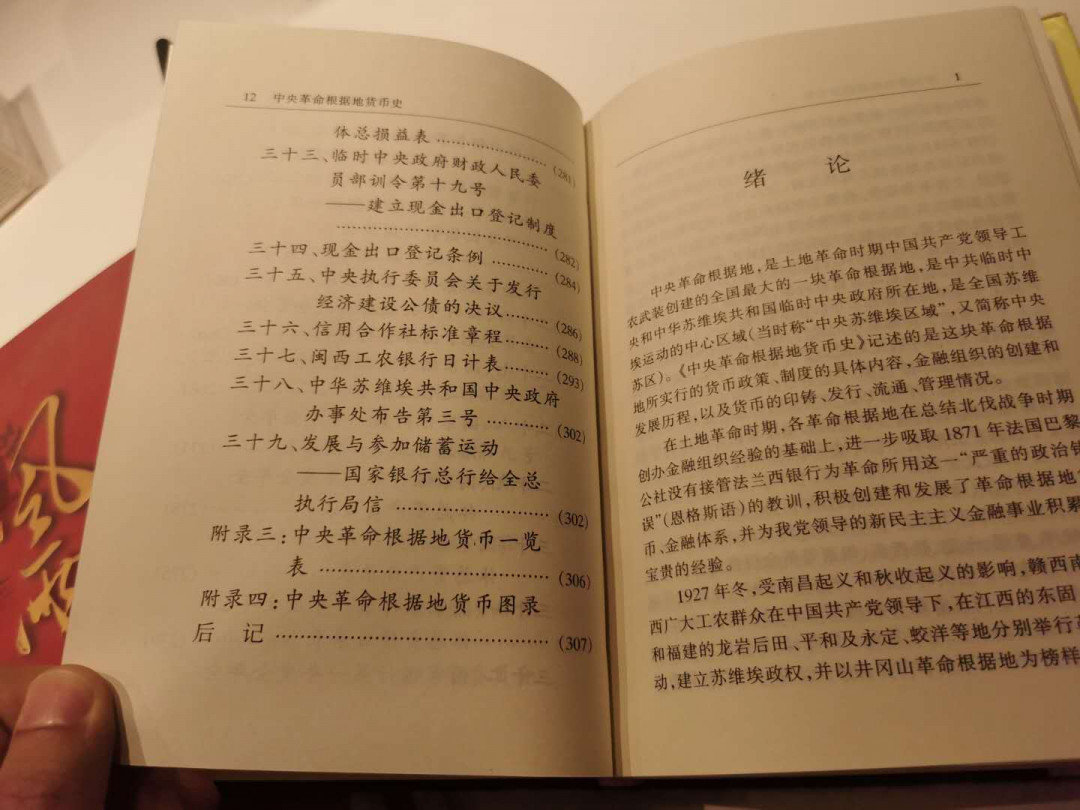 12 中央革命根据地货币史
体总损益表 ……………… (281)
三十三、临时中央政府财政人民委
员部训令第十九号
——建立现金出口登记制度
……………………………… (282)
三十四、现金出口登记条例 ………… (284)
三十五、中央执行委员会关于发行
经济建设公债的决议 ……… (286)
三十六、信用合作社标准章程 ……… (288)
三十七、闽西工农银行日计表 ……… (293)
三十八、中华苏维埃共和国中央政府
办事处布告第三号 ………… (302)
三十九、发展与参加储蓄运动
——国家银行总行给全总
执行局信 …………………… (302)
附录三:中央革命根据地货币一览
表 ……………………………… (306)
附录四:中央革命根据地货币图录
后 记 ……………………………… (307)
1
绪 论
中央革命根据地,是土地革命时期中国共产党领导工
农武装创建的全国最大的一块革命根据地,是中共临时中
央和中华苏维埃共和国临时中央政府所在地,是全国苏维
埃运动的中心区域(当时称“中央苏维埃区域”,又简称中央
苏区)。《中央革命根据地货币史》记述的是这块革命根据
地所实行的货币政策、制度的具体内容,金融组织的创建和
发展历程,以及货币的印铸、发行、流通、管理情况。
在土地革命时期,各革命根据地在总结北伐战争时期
创办金融组织经验的基础上,进一步吸取1871年法国巴黎
公社没有接管法兰西银行为革命所用这一“严重的政治错
误”(恩格斯语)的教训,积极创建和发展了革命根据地
币、金融体系,并为我党领导的新民主主义金融事业积累
宝贵的经验。
1927年冬,受南昌起义和秋收起义的影响,赣西南
西广大工农群众在中国共产党领导下,在江西的东固
和福建的龙岩后田、平和及永定、蛟洋等地分别举行
动,建立苏维埃政权,并以井冈山革命根据地为榜样
风